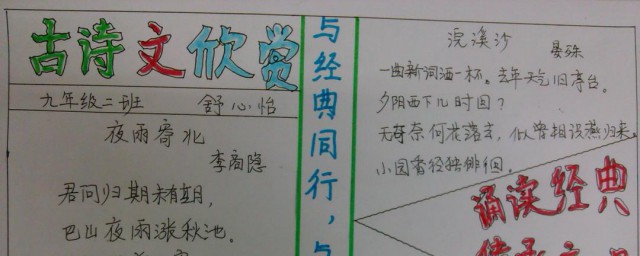 古诗文欣赏
九年级二班 舒心怡
夜雨寄北
李商隐
君问归期未有期，
巴山夜雨涨秋池。
与经典同行，与
浣溪沙
晏殊
一曲新词酒一杯。去年天气旧亭台。
夕阳西下几时回？
无可奈何花落去，似曾相识燕归来。
小园香径独徘徊。
诵读经典